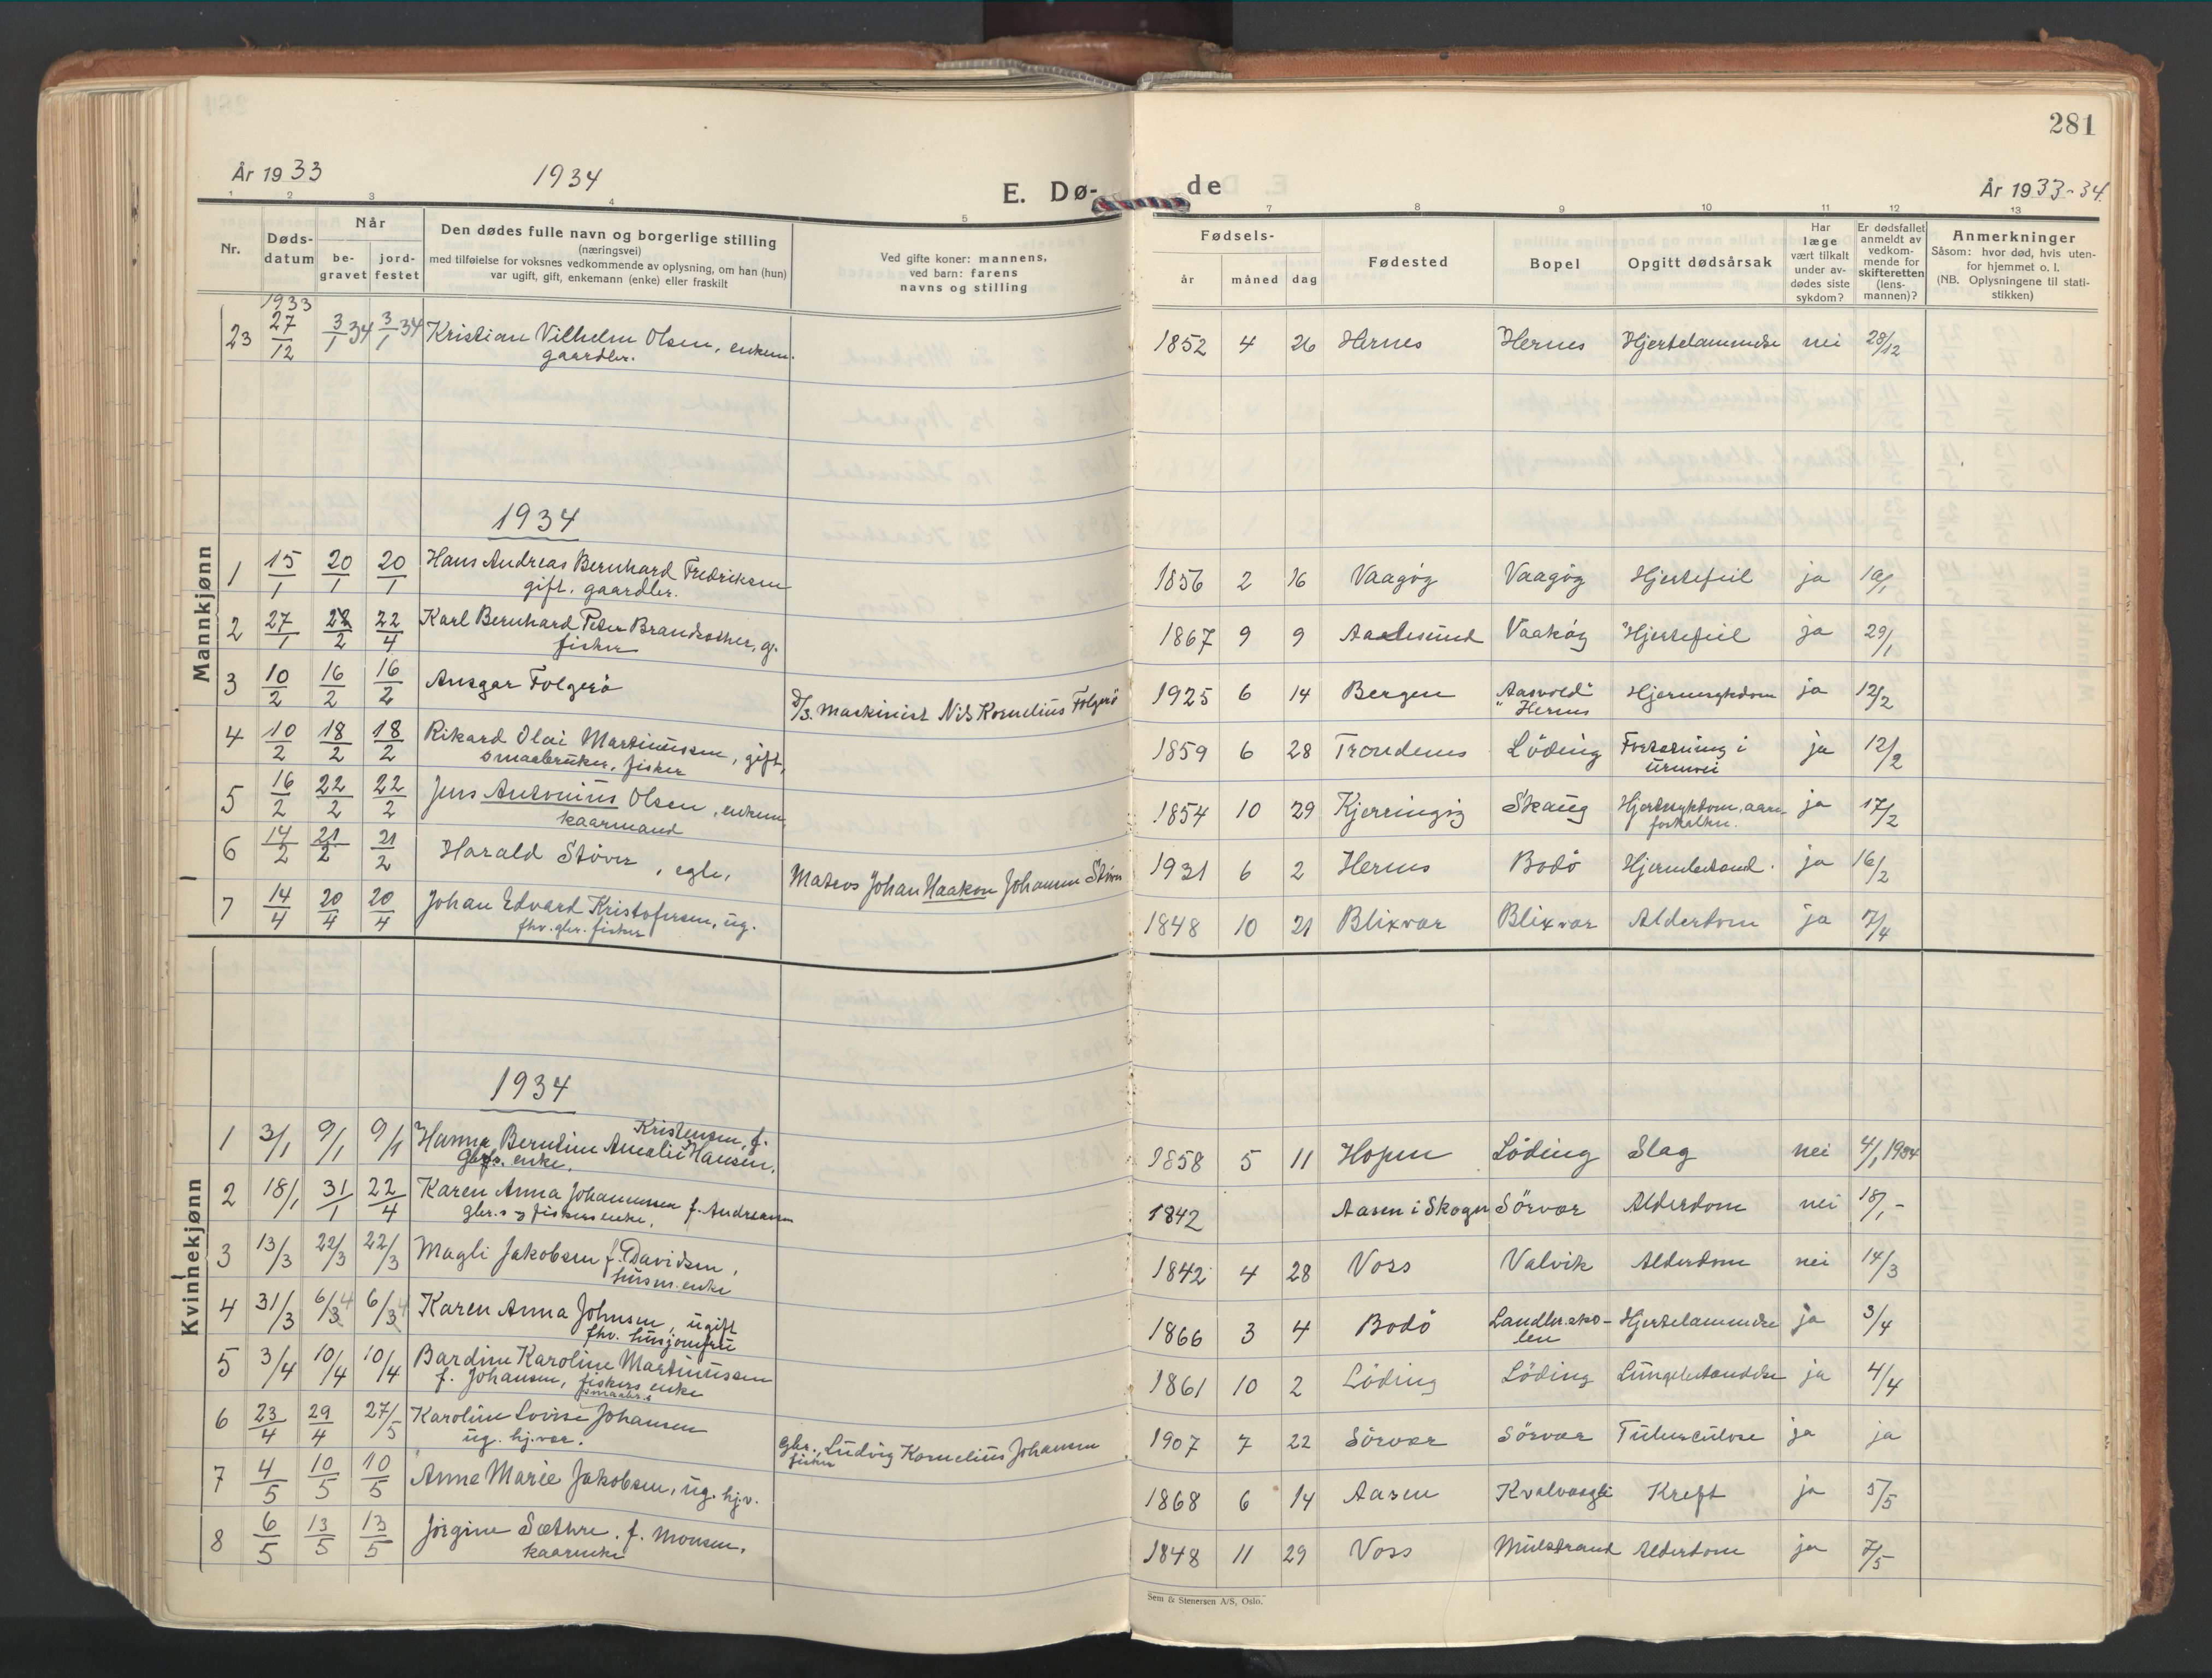 281
År 1933
1934
E. Dø-
de
År 1933-34.
1 2 3 4 5 7 8 9 10 11 12 13
Nr.
Døds-
datum
Når
be-
gravet
jord-
festet
Den dødes fulle navn og borgerlige stilling
(næringsvei)
med tilføielse for voksnes vedkommende av oplysning, om han (hun)
var ugift, gift, enkemann (enke) eller fraskilt
Ved gifte koner: mannens,
ved barn: farens
navns og stilling
Fødsels-
år måned dag
Fødested
Bopel
Opgitt dødsårsak
Har
læge
vært tilkalt
under av-
dødes siste
sykdom?
Er dødsfallet
anmeldt av
vedkom-
mende for
skifteretten
(lens-
mannen)?
Anmerkninger
Såsom: hvor død, hvis uten-
for hjemmet o. l.
(NB. Oplysningene til stati-
stikken)
Mannkjønn
1933
23 27/12 3/1 34 3/1 34 Kristian Vilhelm Olsen, enkem. 1852 4 26 Hernes Hernes Hjertelammelse nei 28/12
gaardbr.
1934
1 15/1 20/1 20/1 Hans Andreas Bernhard Fredriksen 1856 2 16 Vaagög Vaagög Hjertefeil ja
gift. gaardbr.
2 27/1 22/2 22/4 Karl Bernhard Peter, g. 1867 9 9 Aalesund Vaakög Hjertefeil ja 29/1
fisker
3 10/2 16/2 16/2 Ansgar Folgerö Maskinist Nils Kornelius Folgerö 1925 6 14 Bergen "Aasvold" Hjernesykdom ja 12/2
Hernes
4 10/2 18/2 18/2 Rikard Olai Martinussen, gift, 1859 6 28 Trondenes Löding i ja 12/2
smaabruker, fisker urinvei
5 16/2 22/2 22/2 Jens Antonius Olsen, enkem. 1854 10 29 Kjerringöy Skaug Hjertesykdom, aare- ja 17/2
kaarmand forkalkn.
6 14/2 21/2 21/2 Harald Støver, egte, Matros Johan Haakon Johansen Støver 1931 6 2 Hernes Bodö ja 16/2
7 14/4 20/4 20/4 Johan Edvard Kristofersen, ug. 1848 10 21 Blixvær Blixvær Alderdom ja 7/4
fhv. gbr. fisker
Kvinnekjønn
1934
Kristensen, f.
1 3/1 9/1 9/1 Hanna Berntine Amalie Hansen. 1858 5 11 Hopen Löding Slag nei 4/1 1934
enke.
2 18/1 31/1 22/4 Karen Anna Johannesen f. Andreasen 1842 Aasen i Skogn Sörvær Alderdom nei 18/1 -
gbr.s og fiskers enke.
3 13/3 22/3 22/3 Magli Jakobsen f. Davidsen, 1842 4 28 Voss Valvik Alderdom nei 14/3
husm. enke
4 31/3 6/4 6/4 Karen Anna Johnsen, ugift 1866 3 4 Bodö Landbr.sko- Hjertelammelse ja 3/4
fhv. husjomfru len
5 3/4 10/4 10/4 Bardine Karoline Martinussen 1861 10 2 Löding Löding Lungebetændelse ja 4/4
f. Johansen, fiskers enke
smaabr.s
6 23/4 29/4 27/5 Karoline Lovise Johansen gbr., Ludvig Kornelius Johansen 1907 7 22 Sörvær Sörvær Tuberculose ja ja
ug. hj.vær. fisker
7 4/5 10/5 10/5 Anne Marie Jakobsen, ug. hj.v. 1868 6 14 Aasen Kvalvaagli Kreft ja 5/5
8 6/5 13/5 13/5 Jörgine Sæthre, f. Monsen, 1848 11 29 Voss Mulstrand Alderdom ja 7/5
kaarenke
Sem & Stenersen A/S, Oslo.